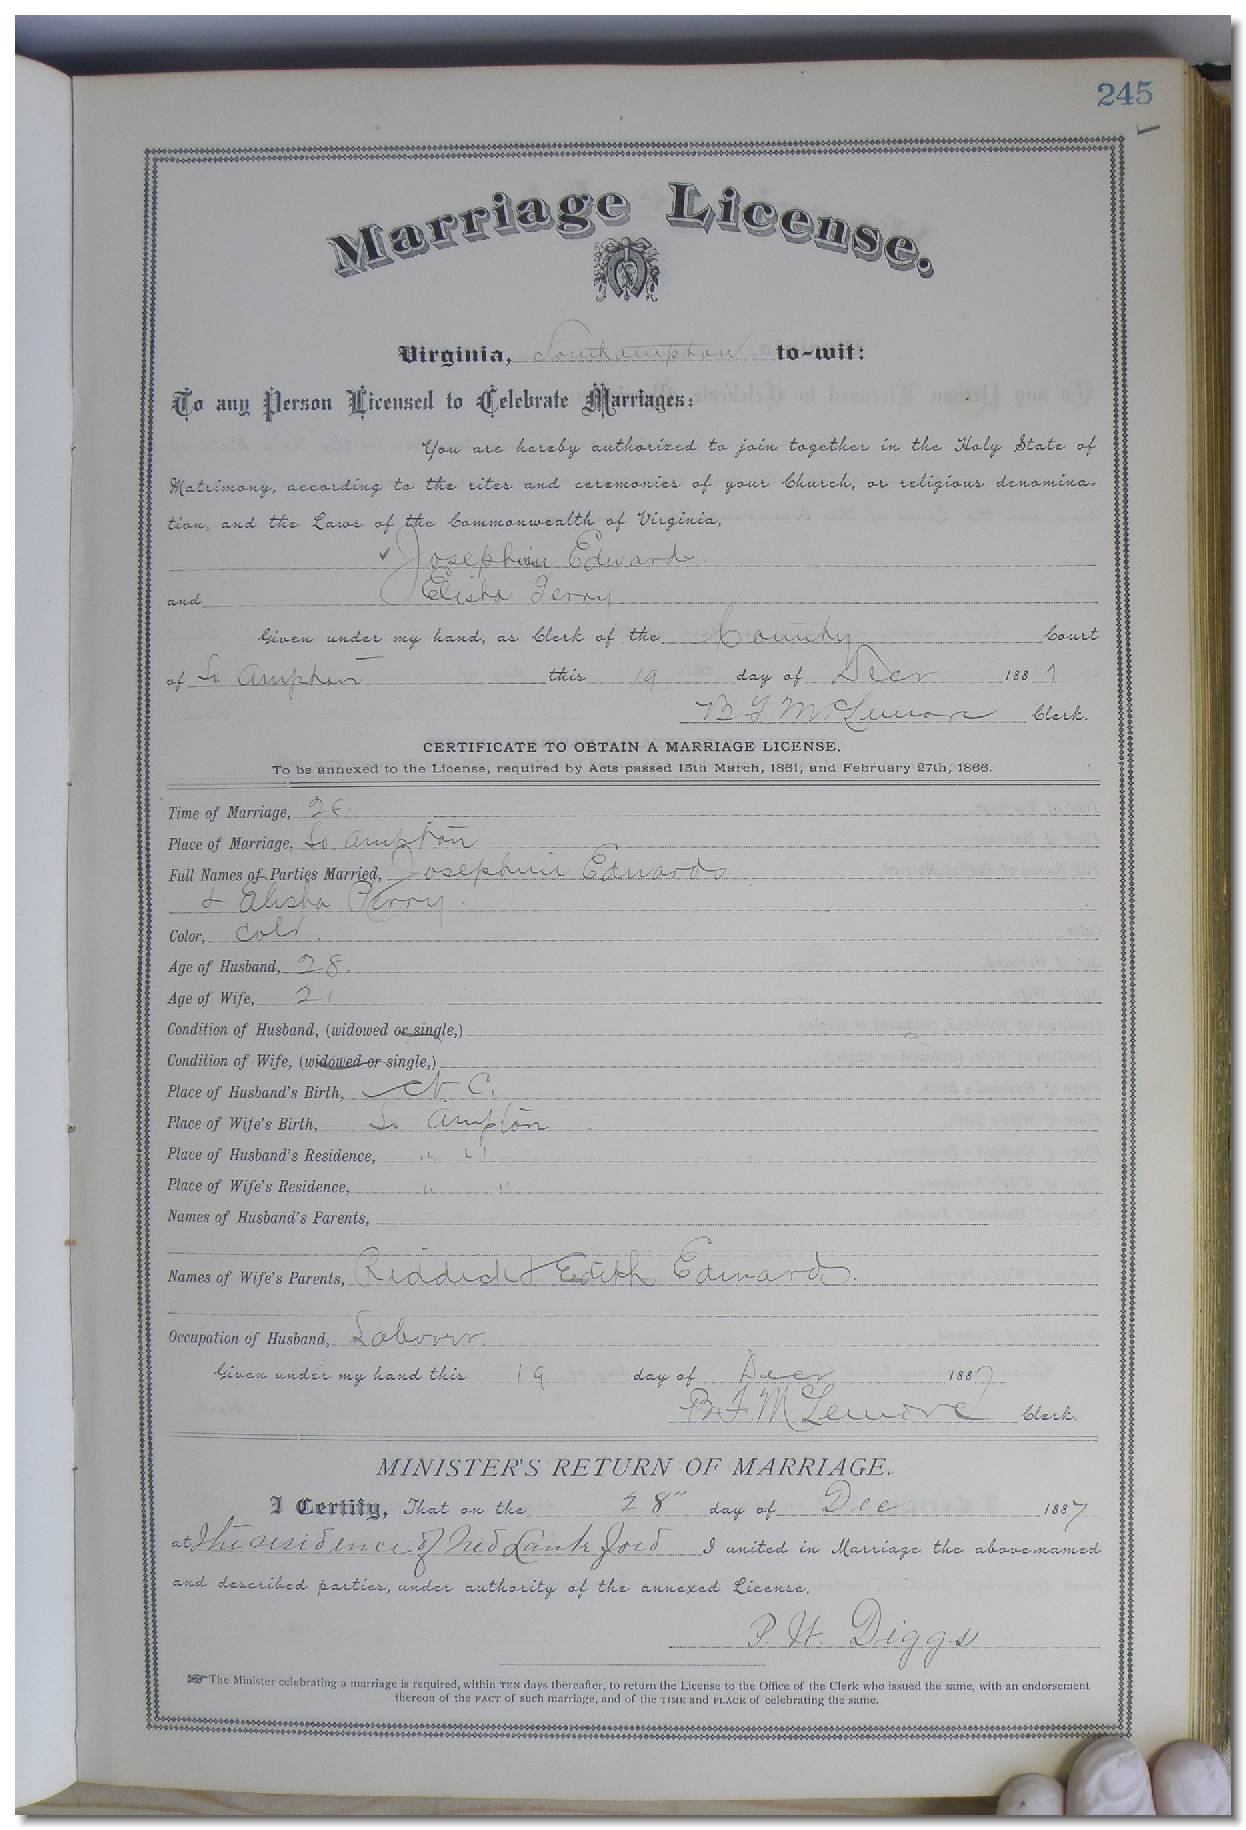 245
Marriage License.
Virginia, Southampton to-wit:
To any Person Licensed to Celebrate Marriages:
You are hereby authorized to join together in the Holy State of
Matrimony, according to the rites and ceremonies of your Church, or religious denomina-
tion, and the Laws of the Commonwealth of Virginia,
Josephine Edwards
and Elisha Perry
Given under my hand, as Clerk of the County Court
of So Ampton this 19 day of Decr 1887
B F McLemore Clerk.
CERTIFICATE TO OBTAIN A MARRIAGE LICENSE.
To be annexed to the License, required by Acts passed 15th March, 1861, and February 27th, 1866.
Time of Marriage,
Place of Marriage, So Ampton
Full Names of Parties Married, Josephine Edwards
& Elisha Perry.
Color, Cold.
Age of Husband, 28.
Age of Wife, 21
Condition of Husband, (widowed or single,)
Condition of Wife, (widowed or single,)
Place of Husband's Birth, N. C.
Place of Wife's Birth, So Ampton
Place of Husband's Residence, " "
Place of Wife's Residence, " "
Names of Husband's Parents,
Names of Wife's Parents, Riddick & Edith Edwards.
Occupation of Husband, Laborer.
Given under my hand this 19 day of Decr 1887
B. F. McLemore Clerk.
MINISTER'S RETURN OF MARRIAGE.
I Certify, That on the 28" day of Dec 1887
at the residence of I united in Marriage the above-named
and described parties, under authority of the annexed License.
P. H. Diggs
The Minister celebrating a marriage is required, within TEN days thereafter, to return the License to the Office of the Clerk who issued the same, with an endorsement
thereon of the FACT of such marriage, and of the TIME and PLACE of celebrating the same.